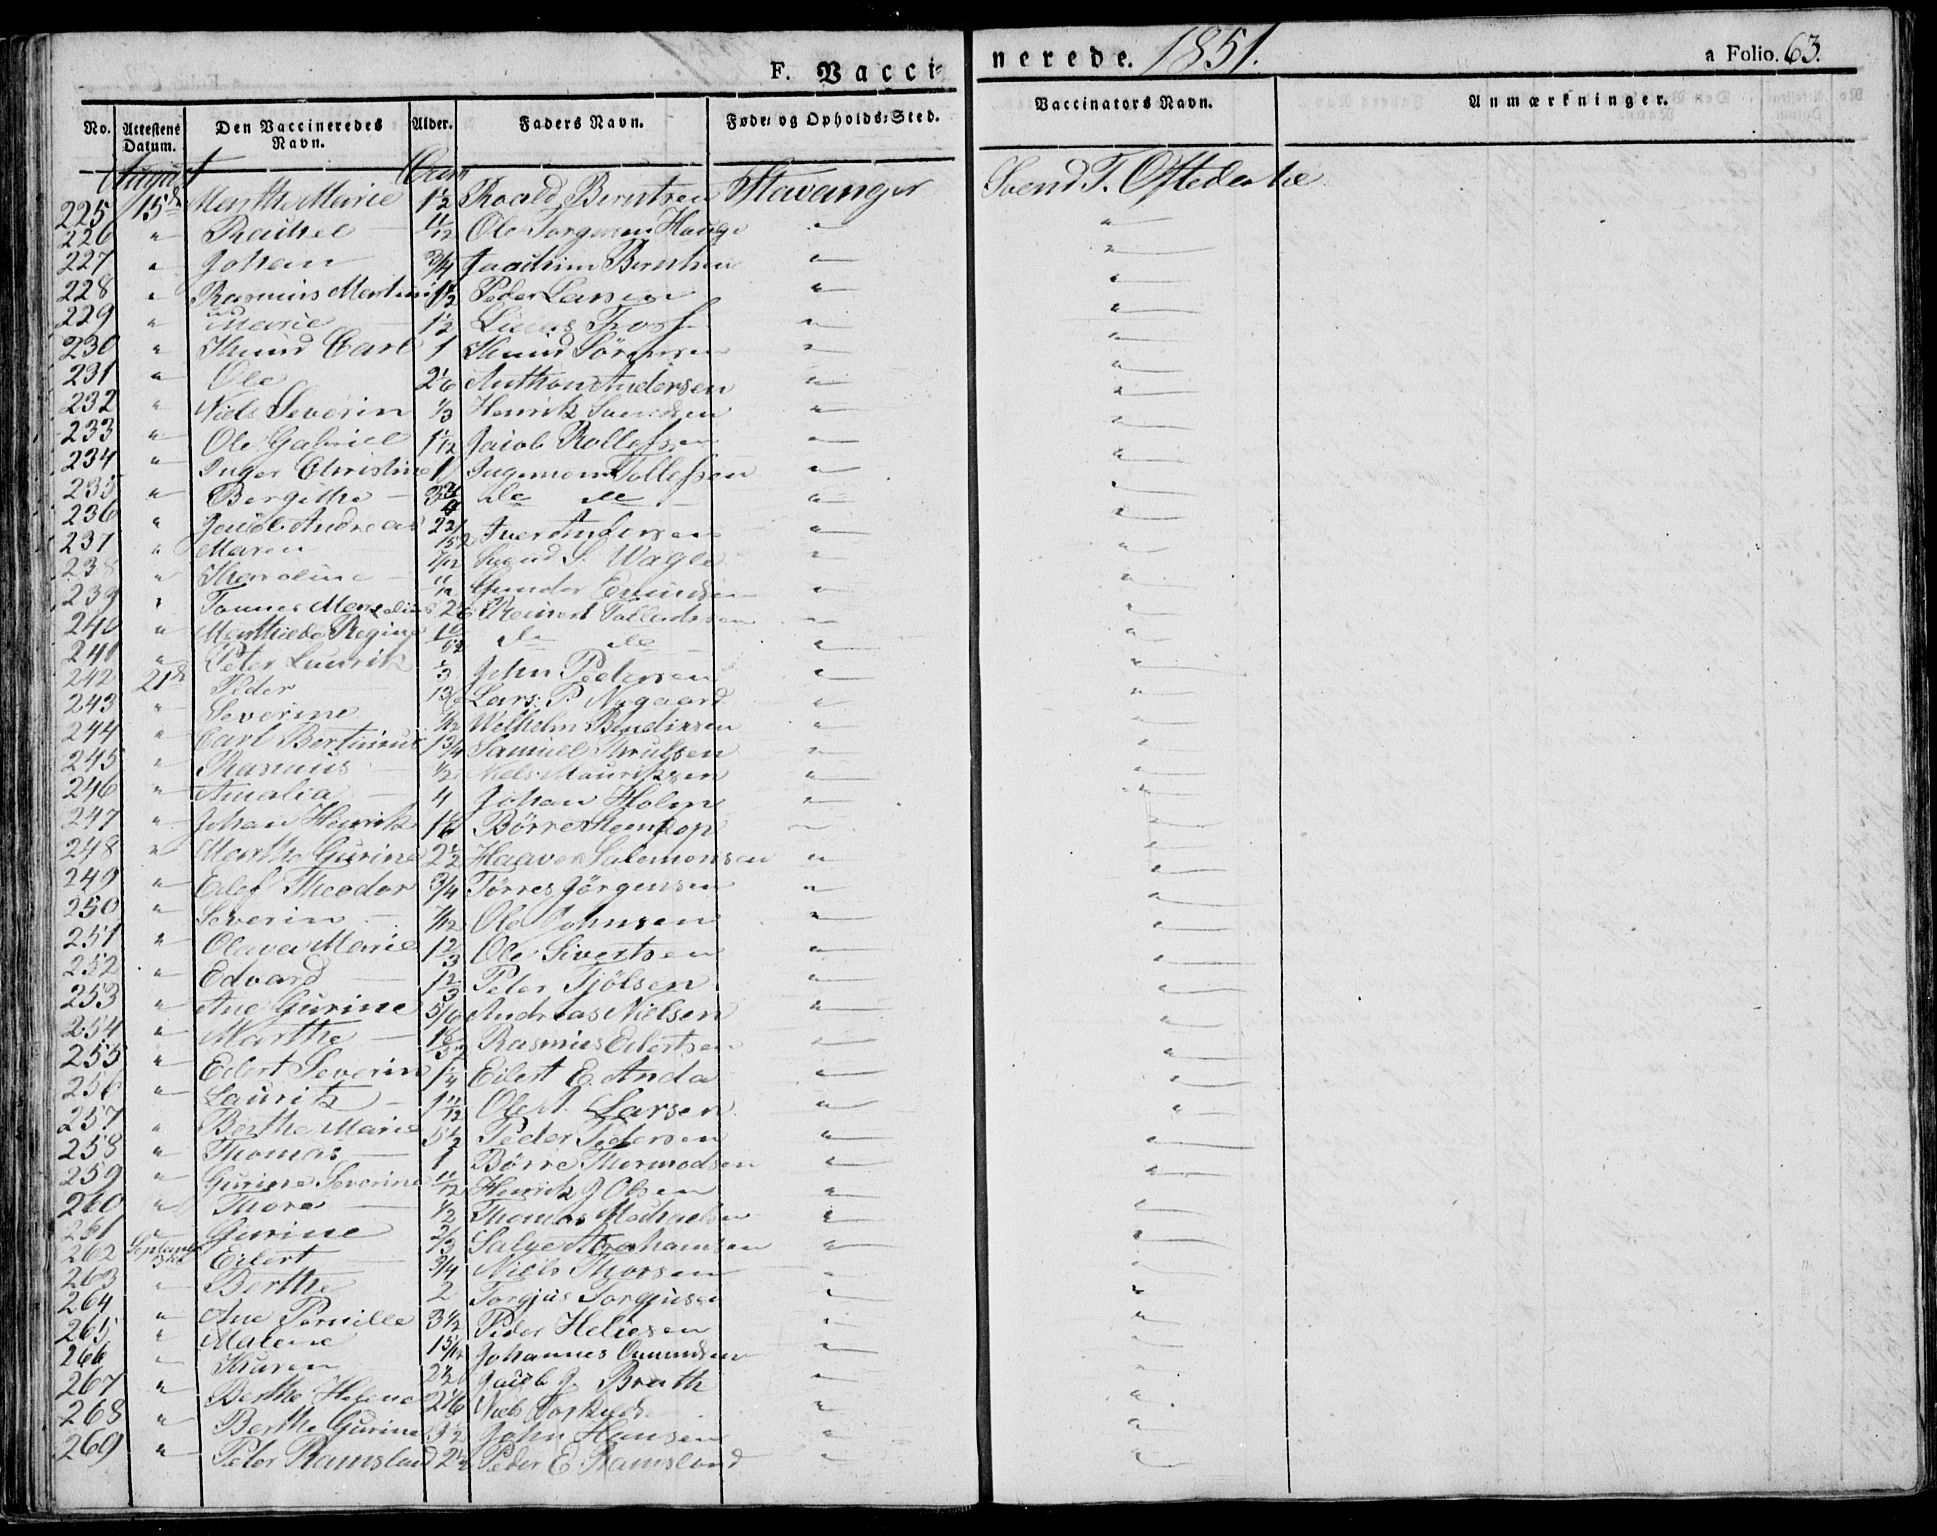 F. Vacci- nerede. 1851. a Folio. 63.
No. Attestens Datum. Den Vaccineredes Navn. Alder. Faders Navn. Føde- og Opholds-Sted. Vaccinators Navn. Anmærkninger.
August
225 15de Marthe Marie 1½ Roald Berntsen Stavanger Svend T. Oftedahl
226 " Rachel 11/12 Ole Torgersen Hauge " "
227 " Johan 3/4 Joachim Berntsen " "
228 " Rasmus Martin 1½ Peder Larsen " "
229 " Marie 1½ Lucas " "
230 " Knud Carl 1 Knud Sörensen " "
231 " Ole 2 1/6 Anthon Andersen " "
232 " Niels Severin 1/3 Henrik Svendsen " "
233 " Ole Gabriel 1 1/12 Jacob Rollefsen " "
234 " Inger Christine 1 Tollefsen " "
235 " Bergithe 3 3/4 do do " "
236 " Jacob Andreas Iver Andersen " "
237 " Maren Svend S. Wagle " "
238 " Karoline 11/12 Gunder " "
239 " Reinert " "
240 " Regine do do " "
241 " Peter Laurik 1/3 John Pedersen " "
242 21de Peder Lars P. Nygaard " "
243 " Severine 7/12 Wilhelm Bendixsen " "
244 " Carl Bertinius 1 3/4 Samuel " "
245 " Rasmus ½ Niels Mauritzsen " "
246 " Amalia 4 Johan Holm " "
247 " Johan Henrik 1 1/6 Börre " "
248 " Marthe Gurine 2½ Haaver Salomonsen " "
249 " Eilef Theodor 3/4 Törres Jörgensen " "
250 " Severin 7/12 Ole Johnsen " "
251 " Olava Marie 1 2/3 Ole Sivertsen " "
252 " Edvard 1 2/3 Peter Tjölsen " "
253 " Ane Gurine 5/6 Andreas Nielsen " "
254 " Marthe Rasmus Eilertsen " "
255 " Eilert Severin 1 1/4 Eilert E. Anda " "
256 " Lauritz 1 11/12 Ole Larsen " "
257 " Berthe Marie 5½ Peder Pedersen " "
258 " Thomas 1 Börre Thormodsen " "
259 " Gurine Severine 11/12 Henrik J Olsen " "
260 " Thore ½ Thomas Michaelsen " "
261 " Gurine 2/3 Salve Abrahamsen " "
262 Eilert 3/4 Niels Thorsen " "
263 " Berthe 2 Torgjus Torgjusen " "
264 " Ane Pernille 3½ Peder Heliesen " "
265 " Malene Johannes Omundsen " "
266 " Karen 2½ Jacob J. Brath " "
267 " Berthe Helene 2 1/6 Niels " "
268 " Berthe Gurine 3½ John Hansen " "
269 " Peter Ramsland 2½ Peder E. Ramsland " "